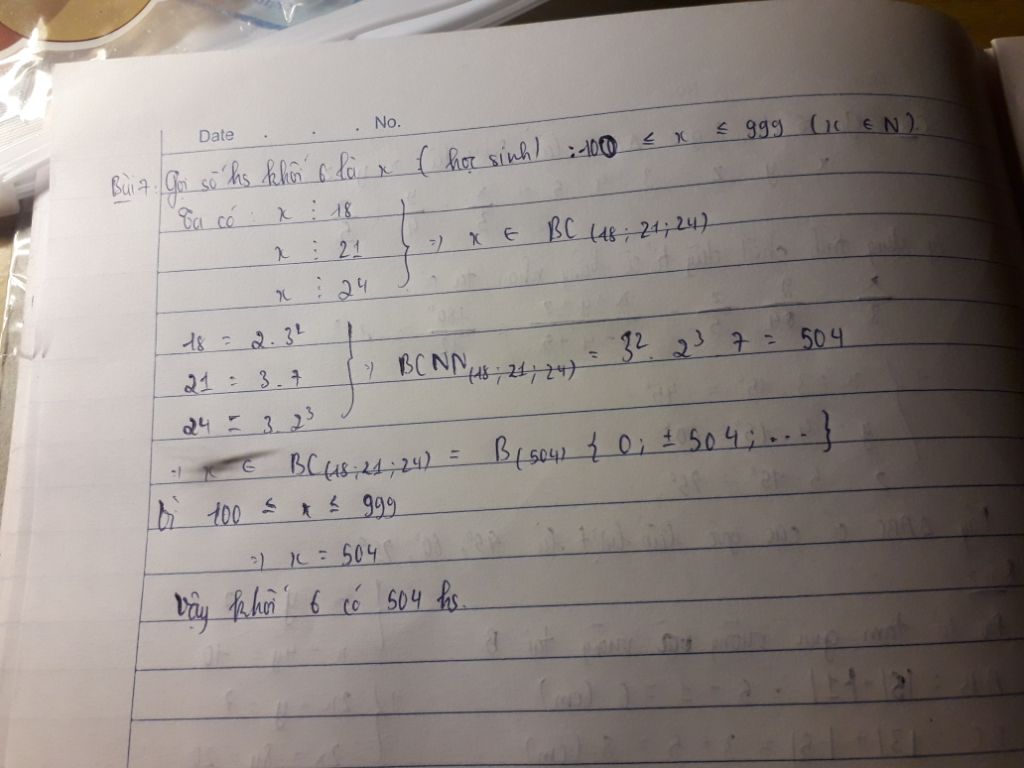 Date . . . No.
Bài 7: Gọi số hs khối 6 là x ( học sinh) : 100 ≤ x ≤ 999 (x ∈ N)
Ta có: x ⋮ 18
x ⋮ 21 } => x ∈ BC (18; 21; 24)
x ⋮ 24
18 = 2. 3²
21 = 3. 7 } => BCNN (18; 21; 24) = 3². 2³ 7 = 504
24 = 3. 2³
=> x ∈ BC (18; 21; 24) = B (504) { 0; ± 504; ... }
Vì 100 ≤ x ≤ 999
=> x = 504
Vậy khối 6 có 504 hs.